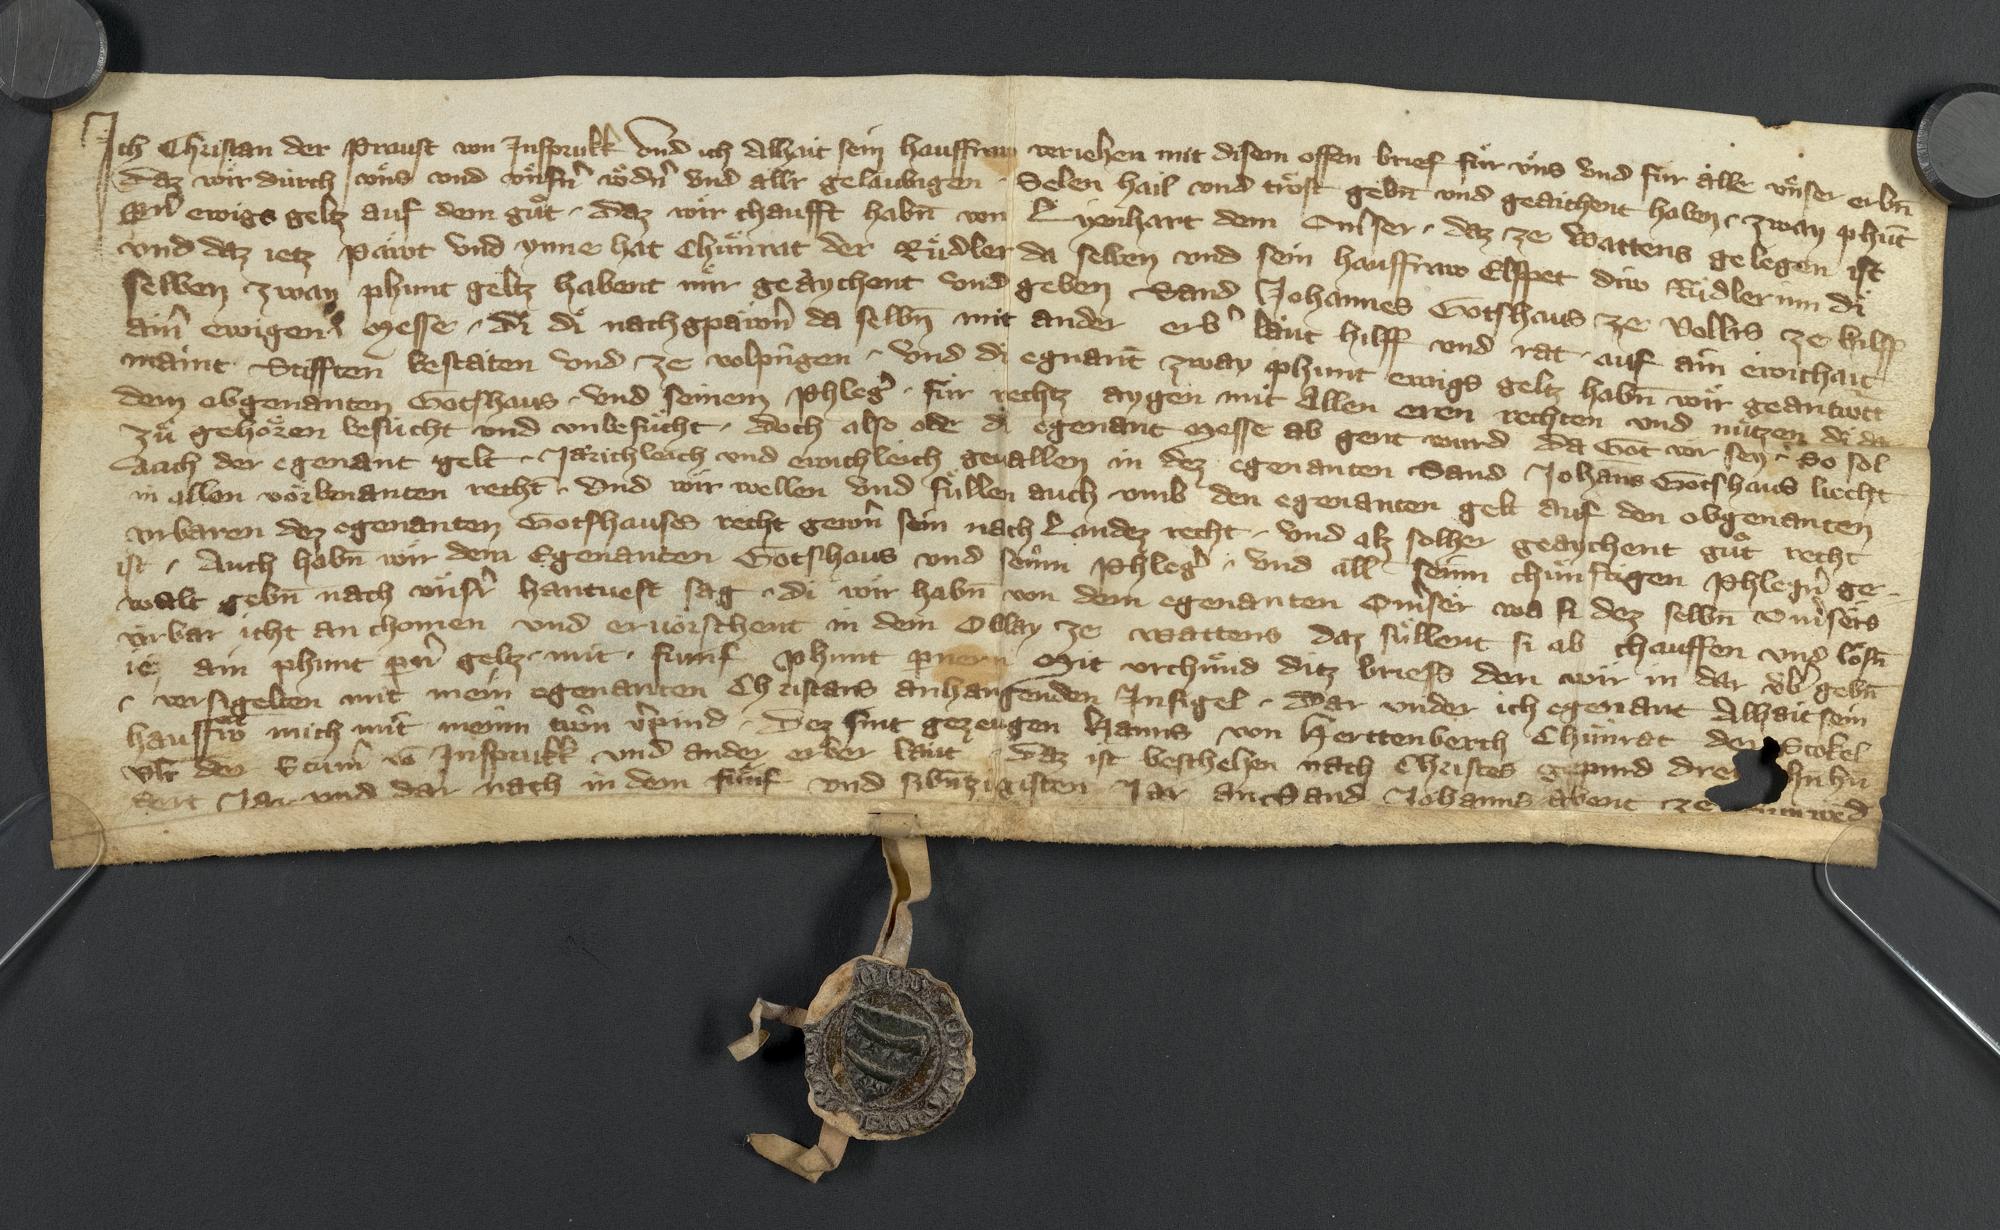 Ich Christan der Praust von Insprukk vnd ich Alhait sein hauffraw veriehen mit disem offen brief für vns vnd für alle vnser erbn̄
Daz wir durch vns vnd vnsr̄ vodr̄n vnd allr gelaubigen Selen hail vnd trost gebn̄ vnd geaichent haben zway phunt
pn̄r ewigs geltz auf dem gut daz wir chaufft habn̄ von Lyenhart dem Omser daz ze Wattens gelegen ist
vnd daz ietz pawt vnd ynne hat Chunrat der Rudler da selben vnd sein hauffraw Elspet diw Ridlerinn di
selben zway phunt geltz habent wir geaychent vnd geben Sand Johannes Gotshaus ze Vollrs ze hilff
ainr̄ ewigen Messe di di nachgpawrn̄ da selbn̄ mit ander erbr̄ laut hilff vnd rat auf ain ewichait
maint Stifften bestaten vnd ze volpringen vnd di egnant zway phunt ewigs geltz habn̄ wir geantwtt
dem obgenanten Gotshaus vnd seinem Phlegr̄ für rechtz aygen mit Allen eren rechten vnd nutzen di da
zu gehozen besucht vnd vnbesucht doch also ob di egenant Messe ab gent wurd da Got vor sey So sol
auch der egenant gelt Järichleich vnd ewichleich geuallen in dez egenanten Sand Johans Gotshaus liecht
in allen vorbenanten recht vnd wir wellen vnd süllen auch vmb den egenanten gelt auf den obgenanten
vrbaren dez egenanten Gotshauses recht gewern sein nach Landez recht vnd alz solher geaychent gut recht
ist Auch habn̄ wir dem Egenanten Gotshaus vnd seinm Phlegr̄ vnd all seinm chünftigen Phlegrn̄ ge-
walt gebn̄ nach vnsr̄ hantuest sag di wir habn̄ von dem egenanten Omser wa si dez selbn̄ Omsers
vrbar icht an chomen vnd eruorschent in dem Oblay ze Wattens daz süllent si ab chauffen vnd losn̄
ie ain phunt pn̄r geltz mit fumf phunt pnern Mit vrchund ditz briefs den wir in dar vbr̄ gebn̄
versigelten mit mein egenanten Christans anhangenden Insigel Dar vnder ich egenant Alhait sein
hauffrō mich mit meinn trwn̄ v̄pind Dez sint gezeugen Hanns von Herttenberch Chunrat der Stokel
Vlr̄ der Sturm vō Insprukk vnd ander erber laut Daz ist beschehen nach Christes gepurd drew hu
dert Jar vnd dar nach in dem fumf vnd sibn̄zigisten Jar an Sand Johanns abent ze